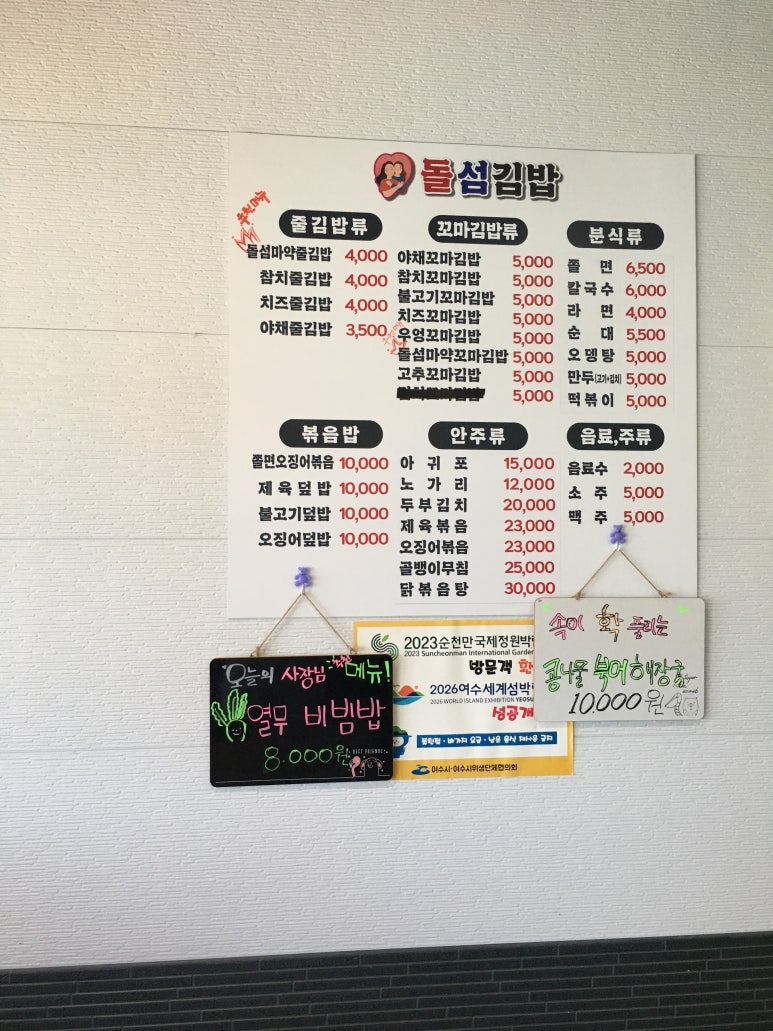 돌섬김밥
추천메뉴
줄김밥류
돌섬마약줄김밥 4,000
참치줄김밥 4,000
치즈줄김밥 4,000
야채줄김밥 3,500
꼬마김밥류
야채꼬마김밥 5,000
참치꼬마김밥 5,000
불고기꼬마김밥 5,000
치즈꼬마김밥 5,000
우엉꼬마김밥 5,000
돌섬마약꼬마김밥 5,000
고추꼬마김밥 5,000
5,000
분식류
쫄 면 6,500
칼국수 6,000
라 면 4,000
순 대 5,500
오뎅탕 5,000
만두(고기+김치) 5,000
떡볶이 5,000
볶음밥
쫄면오징어볶음 10,000
제육덮밥 10,000
불고기덮밥 10,000
오징어덮밥 10,000
안주류
아 귀 포 15,000
노 가 리 12,000
두부김치 20,000
제육볶음 23,000
오징어볶음 23,000
골뱅이무침 25,000
닭볶음탕 30,000
음료,주류
음료수 2,000
소 주 5,000
맥 주 5,000
오늘의 사장님 추천 메뉴!
열무 비빔밥
8.000원
BEST FRIENDS
2023순천만국제정원박
2023 Suncheonman International Garde
방문객 환
2026여수세계섬박
2026 WORLD ISLAND EXHIBITION YEOSU
성공개
불친절·바가지 요금·남은 음식 재사용 금지
여수시·여수시위생단체협의회
속이 확 풀리는
콩나물 북어 해장국
10.000원